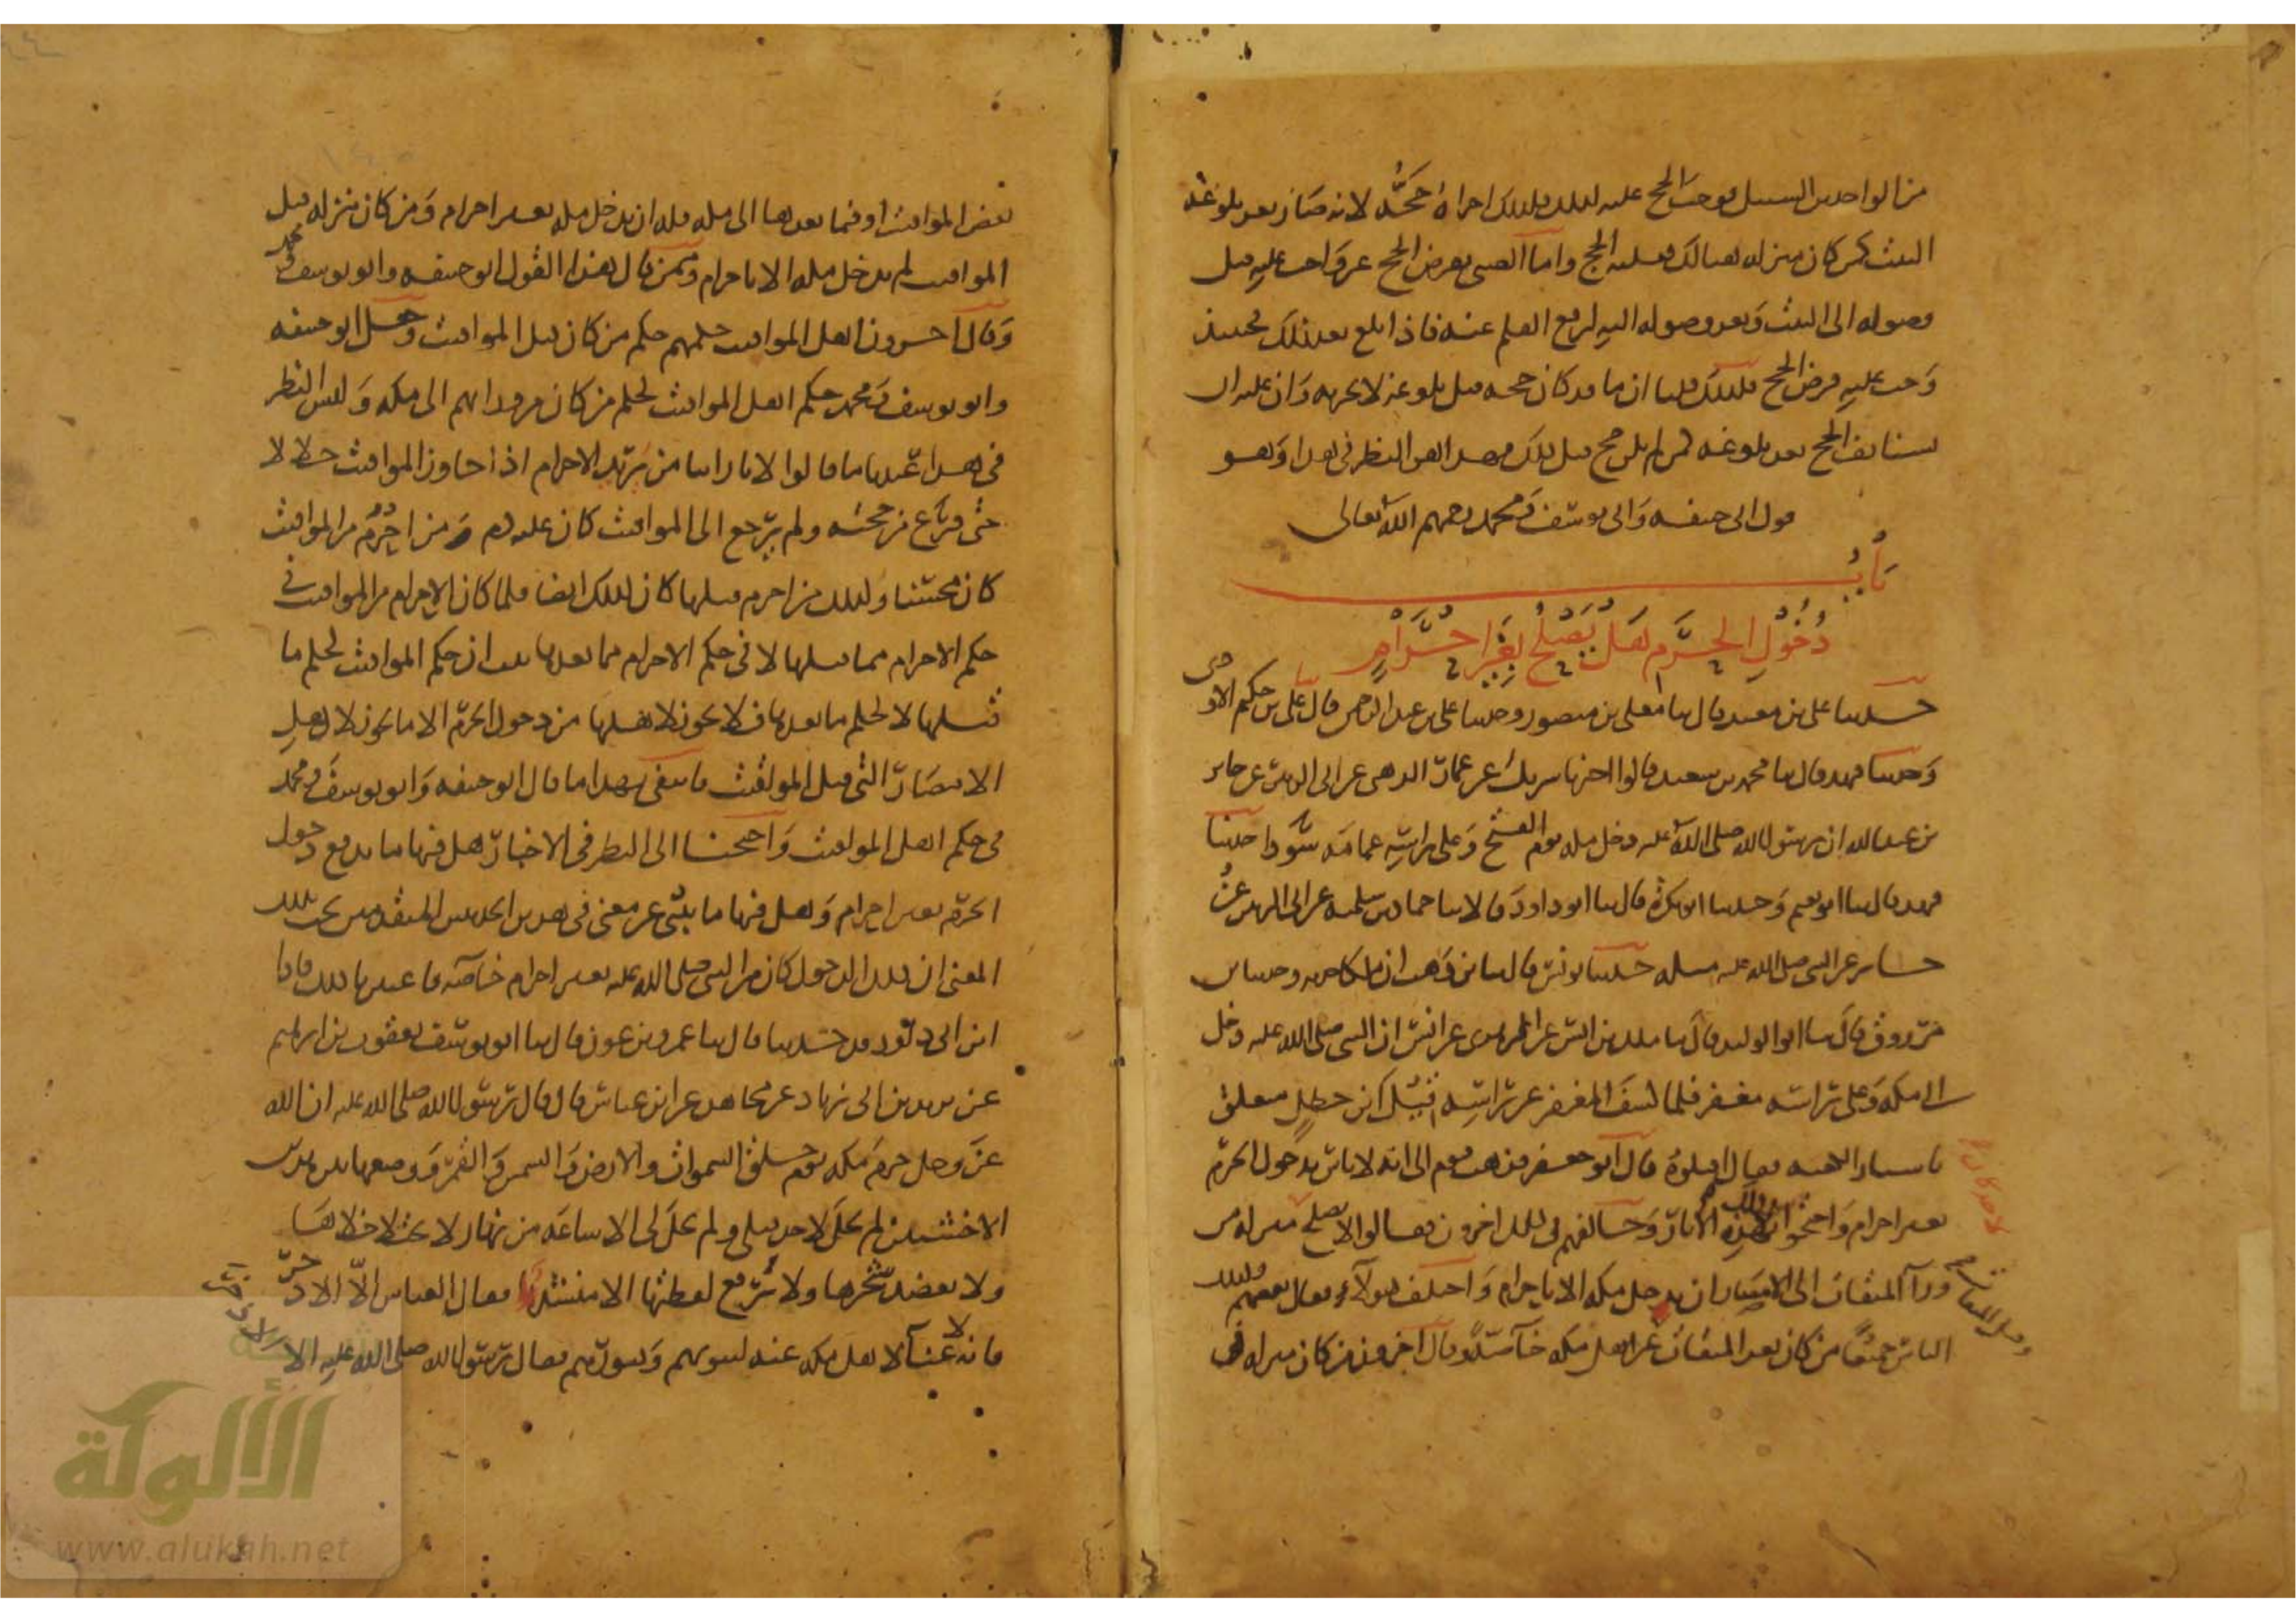 من الواجدين للسبيل فوجب الحج عليه لذلك فلذلك اجزاه حجه لانه صار بعد بلوغه
البيت كمن كان منزله هنالك فعليه الحج واما الصبي ففرض الحج غير واجب عليه قبل
وصوله الى البيت وبعد وصوله اليه لرفع القلم عنه فاذا بلغ بعد ذلك فحينئذ
وجب عليه فرض الحج فلذلك قلنا ان ما قد كان حجه قبل بلوغه لا يجزيه وان عليه ان
يستانف الحج بعد بلوغه كمن لم يكن حج قبل ذلك فهذا هو النظر في هذا وهو
قول ابي حنيفة وابي يوسف ومحمد رحمهم الله تعالى
باب
دخول الحرم هل يصلح بغير احرام
حدثنا علي بن معبد قال ثنا معلى بن منصور وحدثنا علي بن عبد الرحمن قال ثنا علي بن حكيم الاودي
وحدثنا فهد قال ثنا محمد بن سعيد قالوا اخبرنا شريك عن عمار الدهني عن ابي الزبير عن جابر
بن عبد الله ان رسول الله صلى الله عليه دخل مكة يوم الفتح وعلى راسه عمامة سودا حدثنا
فهد قال ثنا ابو نعيم وحدثنا ابو بكرة قال ثنا ابو داود قالا ثنا حماد بن سلمة عن ابي الزبير عن
جابر عن النبي صلى الله عليه مثله حدثنا يونس قال ثنا ابن وهب ان مالكا حدثه وحدثنا ابن
مرزوق قال ثنا ابو الوليد قال ثنا ملك بن انس عن الزهري عن انس ان النبي صلى الله عليه دخل
مكة وعلى راسه مغفر فلما كشف المغفر عن راسه قيل له ابن خطل متعلق
باستار الكعبة فقال اقتلوه قال ابو جعفر فذهب قوم الى انه لا باس بدخول الحرم
بغير احرام واحتجوا في ذلك بهذه الاثار وخالفهم في ذلك اخرون فقالوا لا يصلح لاحد كان منزله من
ورآ الميقات الى الامصار ان يدخل مكة الا باحرام واختلف هولآء فقال بعضهم وكذلك
الناس جميعا من كان بعد الميقات وقبل الميقات غير اهل مكة خاصة وقال اخرون من كان منزله في
بعض المواقيت او فيما بعدها الى مكة فله ان يدخل مكة بغير احرام ومن كان منزله قبل
المواقيت لم يدخل مكة الا باحرام وممن قال بهذا القول ابو حنيفة وابو يوسف ومحمد
وقال اخرون اهل المواقيت حكمهم حكم من كان قبل المواقيت وجعل ابو حنيفة
وابو يوسف ومحمد حكم اهل المواقيت كحكم من كان من ورائهم الى مكة وليس النظر
في هذا عندنا ما قالوا لانا راينا من يريد الاحرام اذا جاوز المواقيت حلالا
حتى فرغ من حجته ولم يرجع الى المواقيت كان عليه دم ومن احرم من المواقيت
كان محسنا وكذلك من احرم قبلها كان كذلك ايضا فلما كان الاحرام من المواقيت في
حكم الاحرام مما قبلها لا في حكم الاحرام مما بعدها ثبت ان حكم المواقيت كحكم ما
قبلها لا كحكم ما بعدها فلا يجوز لاهلها من دخول الحرم الا ما يجوز لاهل
الامصار التي قبل المواقيت فانتفى بهذا ما قال ابو حنيفة وابو يوسف ومحمد
في حكم اهل المواقيت واحتجنا الى النظر في الاخبار هل فيها ما يدفع دخول
الحرم بغير احرام وهل فيها ما ينبي عن معنى في هذين الحديثين المتقدمين يجب بذلك
المعنى ان ذلك الدخول كان من النبي صلى الله عليه بغير احرام خاصة فاعتبرنا ذلك فاذا
ابن ابي داود قد حدثنا قال ثنا عمرو بن عون قال ثنا ابو يوسف يعقوب بن ابراهيم
عن يزيد بن ابي زياد عن مجاهد عن ابن عباس قال قال رسول الله صلى الله عليه ان الله
عز وجل حرم مكة يوم خلق السموات والارض والشمس والقمر ووضعها بين هذين
الاخشبين لم تحل لاحد قبلي ولم تحل لي الا ساعة من نهار لا يختلا خلاها
ولا يعضد شجرها ولا يرفع لقطتها الا منشدها فقال العباس الا الاذخر
فانه لا غنآ لاهل مكة عنه لبيوتهم وقبورهم فقال رسول الله صلى الله عليه الا الاذخر
الألوكة
www.alukah.net